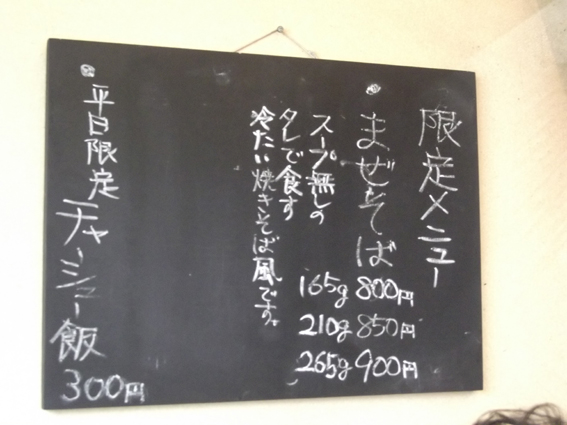 限定メニュー
まぜそば
165g 800円
210g 850円
265g 900円
スープ無しの
タレで食す
冷たい焼きそば風です。
平日限定
チャーシュー飯
300円